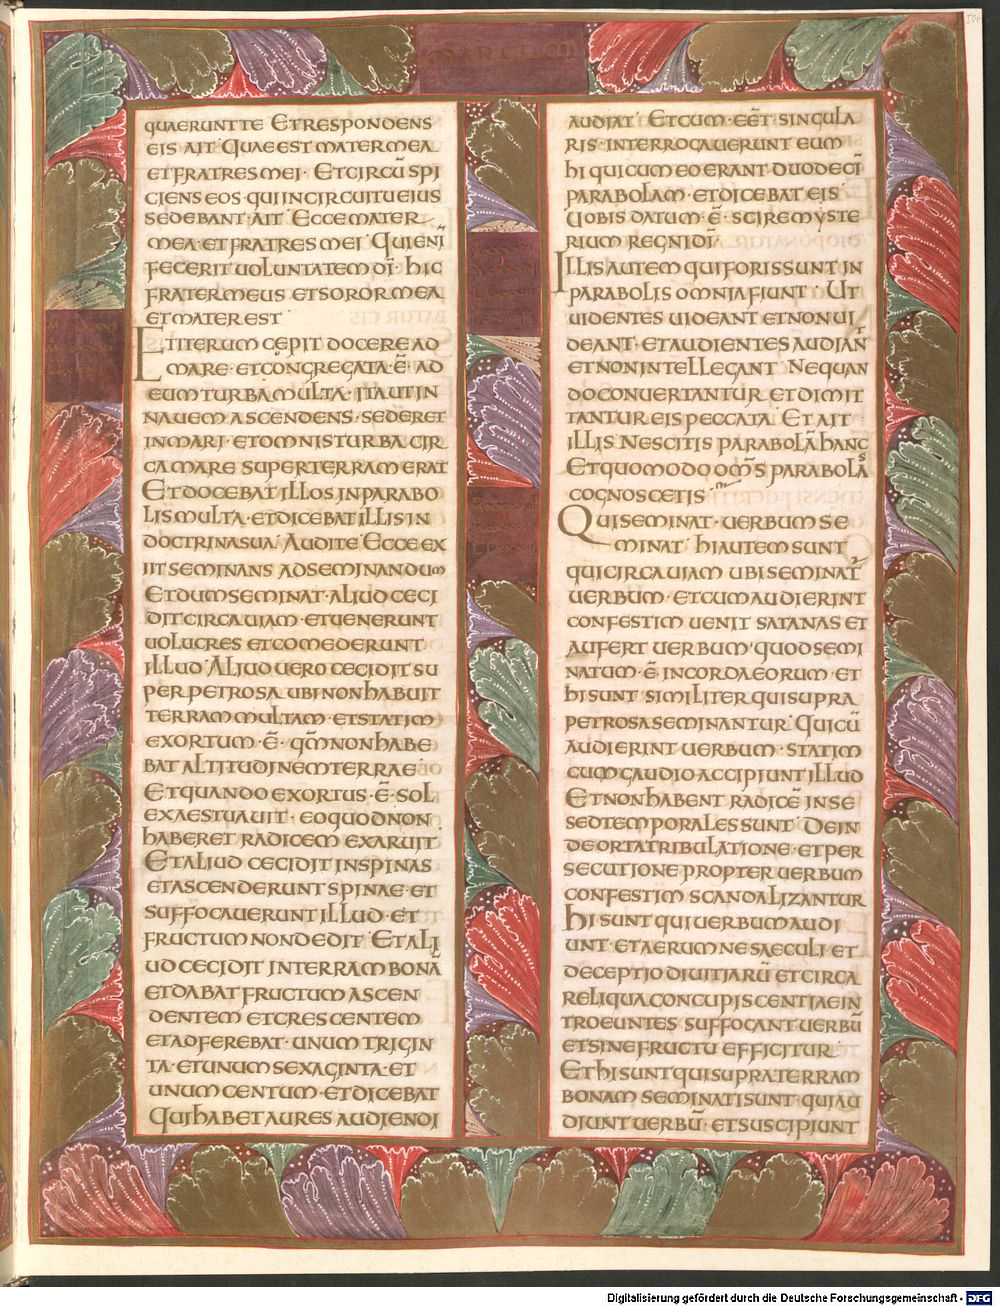 MARCUM
QUAERUNT TE ET RESPONDENS
EIS AIT QUAE EST MATER MEA
ET FRATRES MEI · ET CIRCŪ SPI
CIENS EOS · QUI IN CIRCUITU EIUS
SEDEBANT · AIT · ECCE MATER
MEA · ET FRATRES MEI QUI ENĪ
FECERIT UOLUNTATEM DĪ · HIC
FRATER MEUS ET SOROR MEA
ET MATER EST
ET ITERUM CĘPIT DOCERE AD
MARE · ET CONGREGATA · Ē · AD
EUM TURBA MULTA · ITA UT IN
NAUEM ASCENDENS · SEDERET
IN MARI · ET OMNIS TURBA CIR
CA MARE SUPER TERRAM ERAT
ET DOCEBAT ILLOS IN PARABO
LIS MULTA · ET DICEBAT ILLIS IN
DOCTRINA SUA · AUDITE ECCE EX
IIT SEMINANS AD SEMINANDUM
ET DUM SEMINAT · ALIUD CECI
DIT CIRCA UIAM · ET UENERUNT
UOLUCRES ET COMEDERUNT
ILLUD · ALIUD UERO CECIDIT SU
PER PETROSA UBI NON HABUIT
TERRAM MULTAM · ET STATIM
EXORTUM · Ē · QM̄ NON HABE
BAT ALTITUDINEM TERRAE
ET QUANDO EXORTUS · Ē · SOL
EXAESTUAUIT · EO QUOD NON
HABERET RADICEM EXARUIT
ET ALIUD CECIDIT IN SPINAS
ET ASCENDERUNT SPINAE · ET
SUFFOCAUERUNT ILLUD · ET
FRUCTUM NON DEDIT ET ALI
UD CECIDIT IN TERRAM BONĀ
ET DABAT FRUCTUM ASCEN
DENTEM ET CRESCENTEM
ET ADFEREBAT · UNUM TRIGIN
TA · ET UNUM SEXAGINTA · ET
UNUM CENTUM · ET DICEBAT
QUI HABET AURES AUDIENDI
AUDIAT · ET CUM · EĒT · SINGULA
RIS · INTERROGAUERUNT EUM
HI QUI CUM EO ERANT DUODECĪ
PARABOLAM · ET DICEBAT EIS
UOBIS DATUM · Ē · SCIRE MYSTE
RIUM REGNI DĪ
ILLIS AUTEM QUI FORIS SUNT IN
PARABOLIS OMNIA FIUNT · UT
UIDENTES UIDEANT ET NON UI
DEANT · ET AUDIENTES AUDIAN̄
ET NON INTELLEGANT NEQUAN
DO CONUERTANTUR ET DIMIT
TANTUR EIS PECCATA · ET AIT
ILLIS NESCITIS PARABOLĀ HANC
ET QUOMODO OM̄S PARABOLAS
COGNOSCETIS
QUI SEMINAT · UERBUM SE
MINAT · HI AUTEM SUNT
QUI CIRCA UIAM UBI SEMINAT̄
UERBUM · ET CUM AUDIERINT
CONFESTIM UENIT SATANAS ET
AUFERT UERBUM QUOD SEMI
NATUM · Ē IN CORDA EORUM · ET
HI SUNT SIMILITER QUI SUPRA
PETROSA SEMINANTUR · QUI CŪ
AUDIERINT UERBUM · STATIM
CUM GAUDIO ACCIPIUNT ILLUD
ET NON HABENT RADICĒ IN SE
SED TEMPORALES SUNT DEIN
DE ORTA TRIBULATIONE · ET PER
SECUTIONE PROPTER UERBUM
CONFESTIM SCANDALIZANTUR
HI SUNT QUI UERBUM AUDI
UNT · ET AERUMNE SAECULI ET
DECEPTIO DIUITIARŪ ET CIRCA
RELIQUA CONCUPISCENTIAE IN
TROEUNTES SUFFOCANT UERBŪ
ET SINE FRUCTU EFFICITUR
ET HI SUNT QUI SUPRA TERRAM
BONAM SEMINATI SUNT · QUI AU
DIUNT UERBŪ · ET SUSCIPIUNT
Digitalisierung gefördert durch die Deutsche Forschungsgemeinschaft - DFG